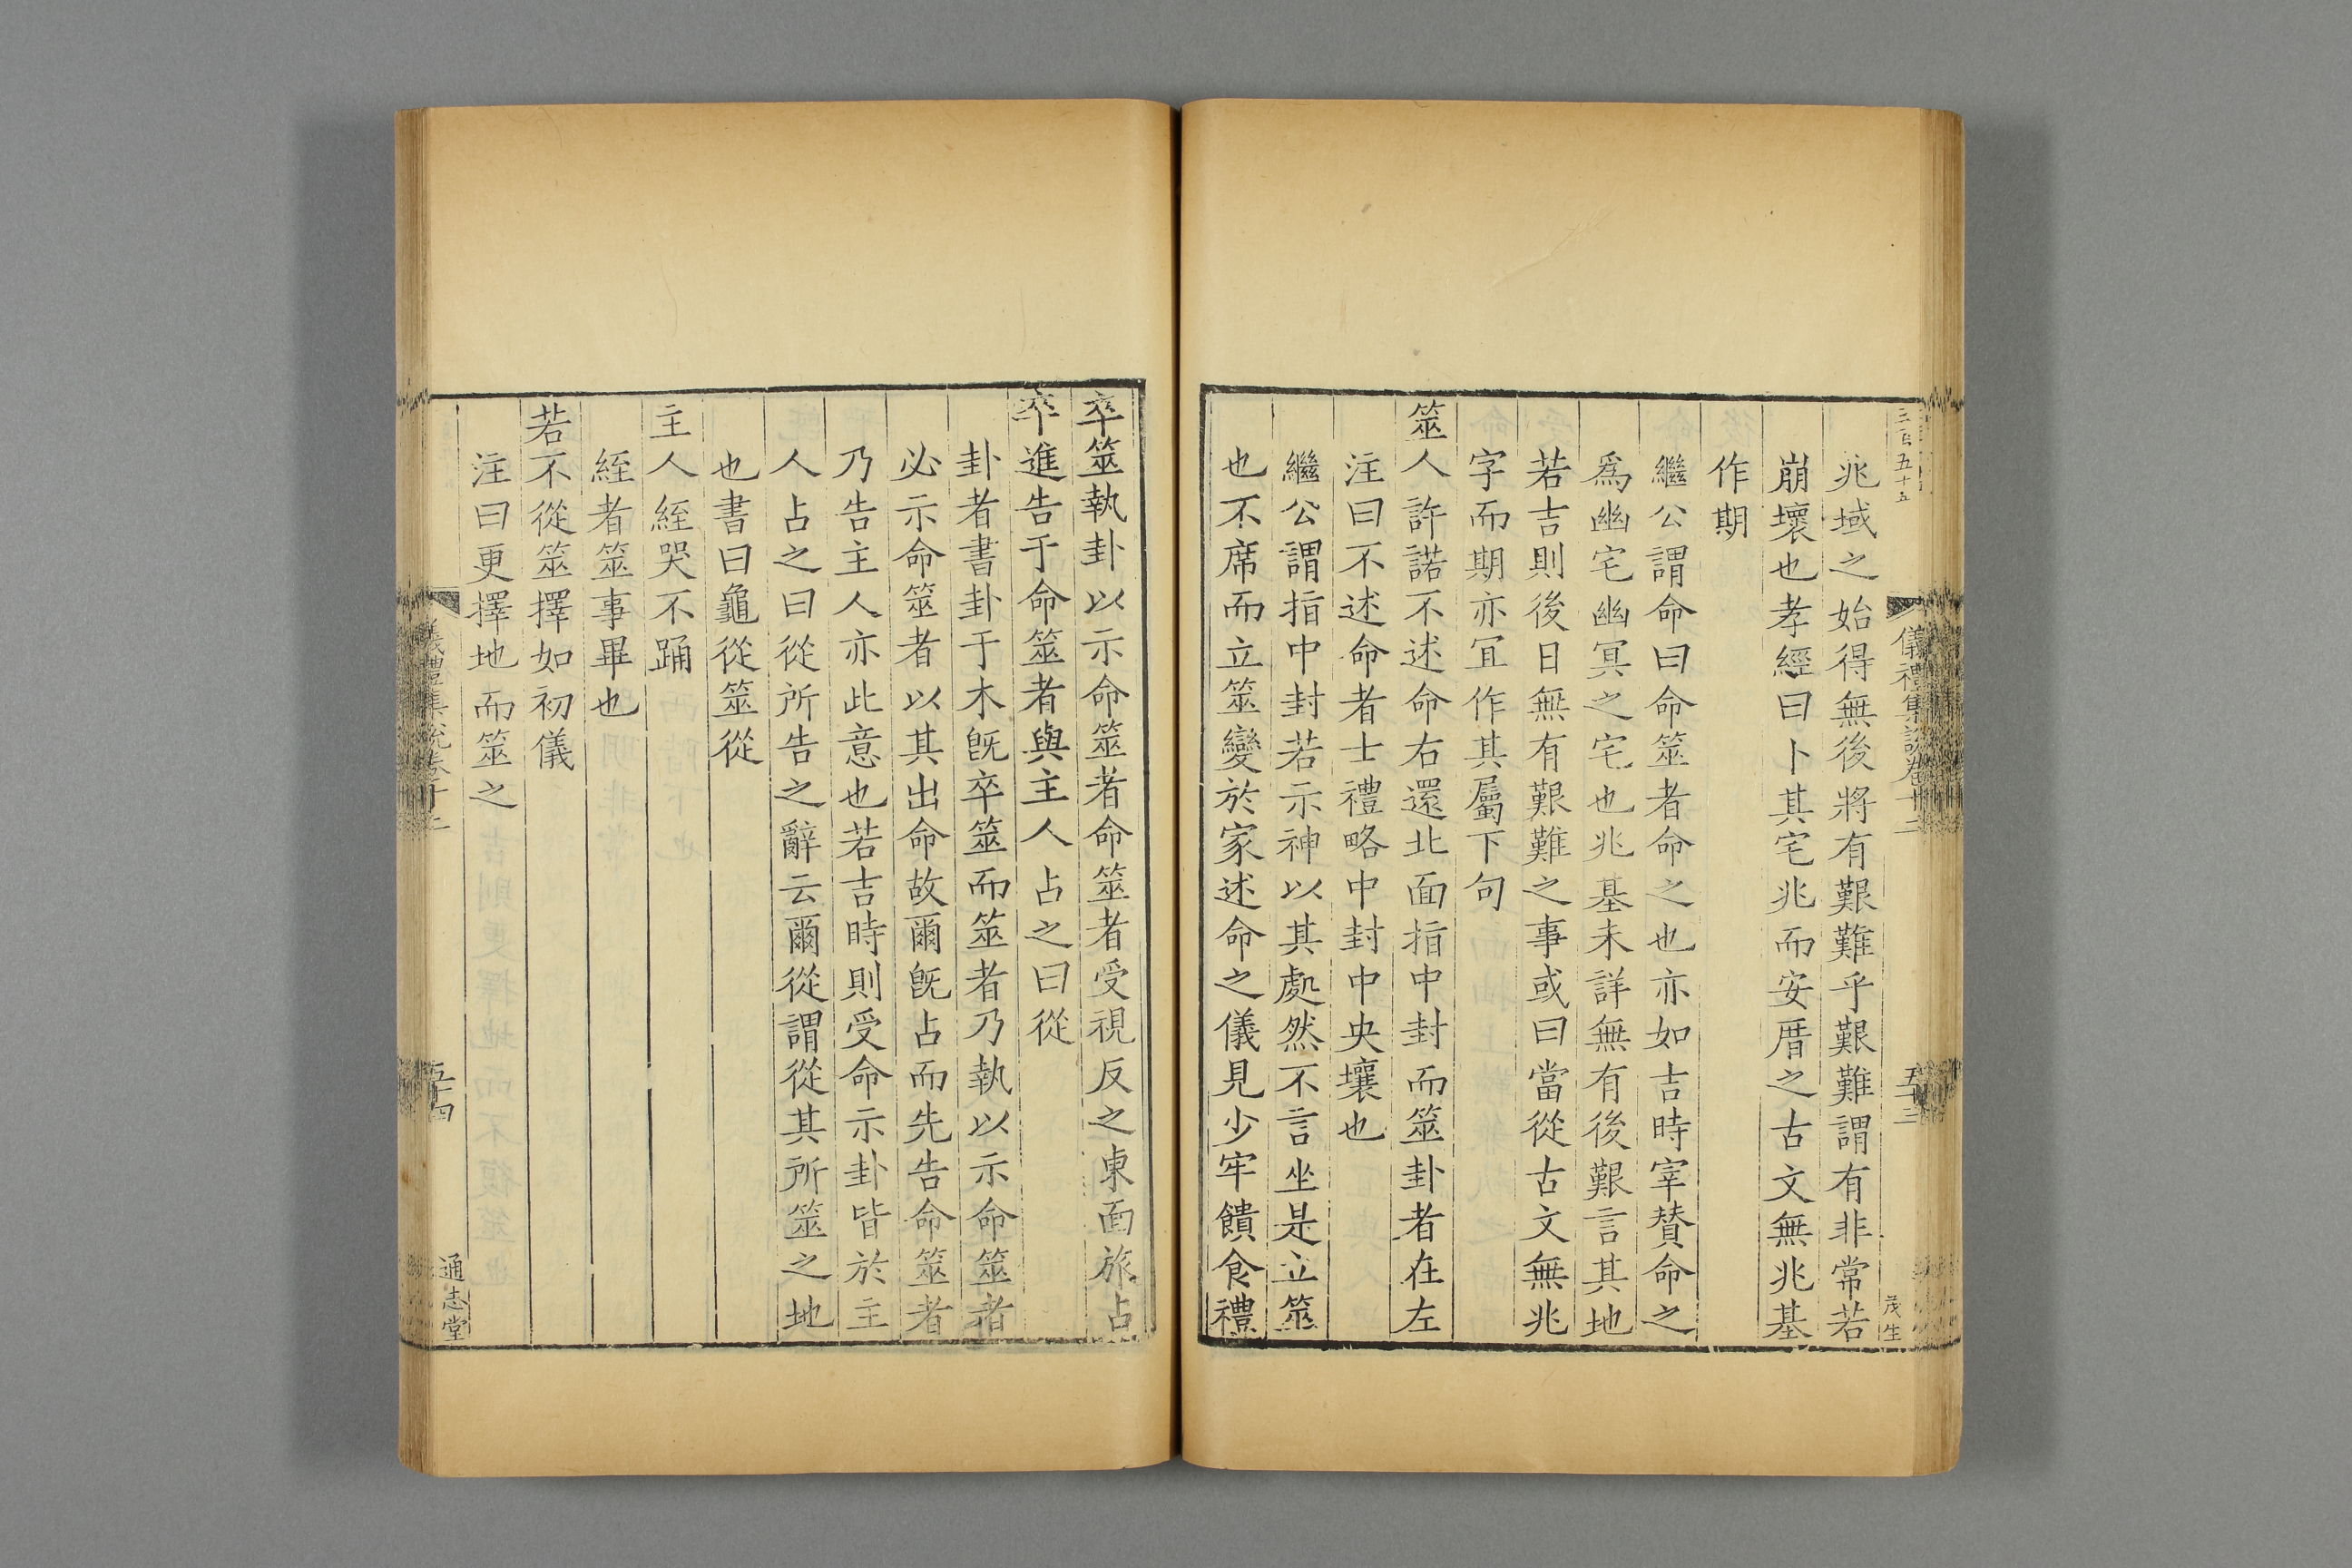 三百五十五
儀禮集説卷十二
五十三
茂生
兆域之始得無後將有艱難乎艱難謂有非常若
崩壞也孝經曰卜其宅兆而安厝之古文無兆基
作期
繼公謂命曰命筮者命之也亦如吉時宰賛命之
爲幽宅幽冥之宅也兆基未詳無有後艱言其地
若吉則後日無有艱難之事或曰當從古文無兆
字而期亦宜作其屬下句
筮人許諾不述命右還北面指中封而筮卦者在左
注曰不述命者士禮略中封中央壤也
繼公謂指中封若示神以其處然不言坐是立筮
也不席而立筮變於家述命之儀見少牢饋食禮
卒筮執卦以示命筮者命筮者受視反之東面旅占
卒進告于命筮者與主人占之曰從
卦者書卦于木旣卒筮而筮者乃執以示命筮者
必示命筮者以其出命故爾旣占而先告命筮者
乃告主人亦此意也若吉時則受命示卦皆於主
人占之曰從所告之辭云爾從謂從其所筮之地
也書曰龜從筮從
主人絰哭不踊
絰者筮事畢也
若不從筮擇如初儀
注曰更擇地而筮之
儀禮集説卷十二
五十四
通志堂